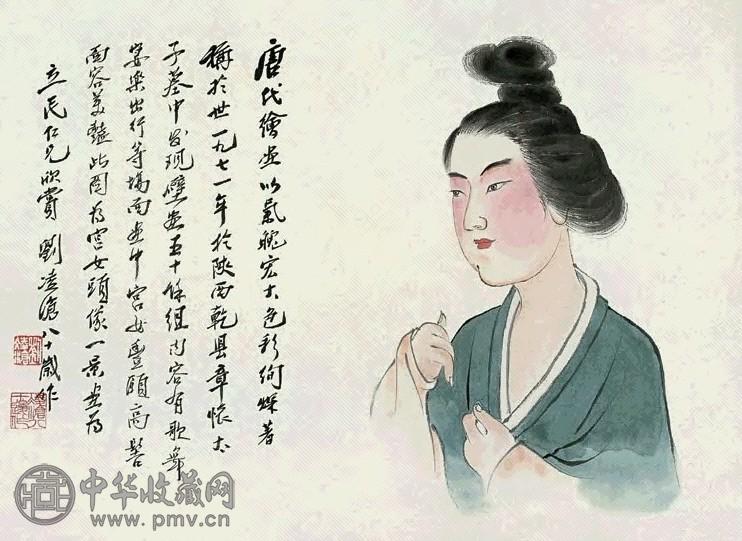 唐代繪畫以氣魄宏大色彩絢爛著
稱於世一九七一年於陝西乾县章懷太
子墓中发现壁画五十條组内容有歌舞
宴樂出行等場面画中宫女豐頤高髻
面容美豔此圖为宫女頭像一景画为
立民仁兄欣賞 劉凌滄八十歲作
中华收藏网
www.pmv.cn